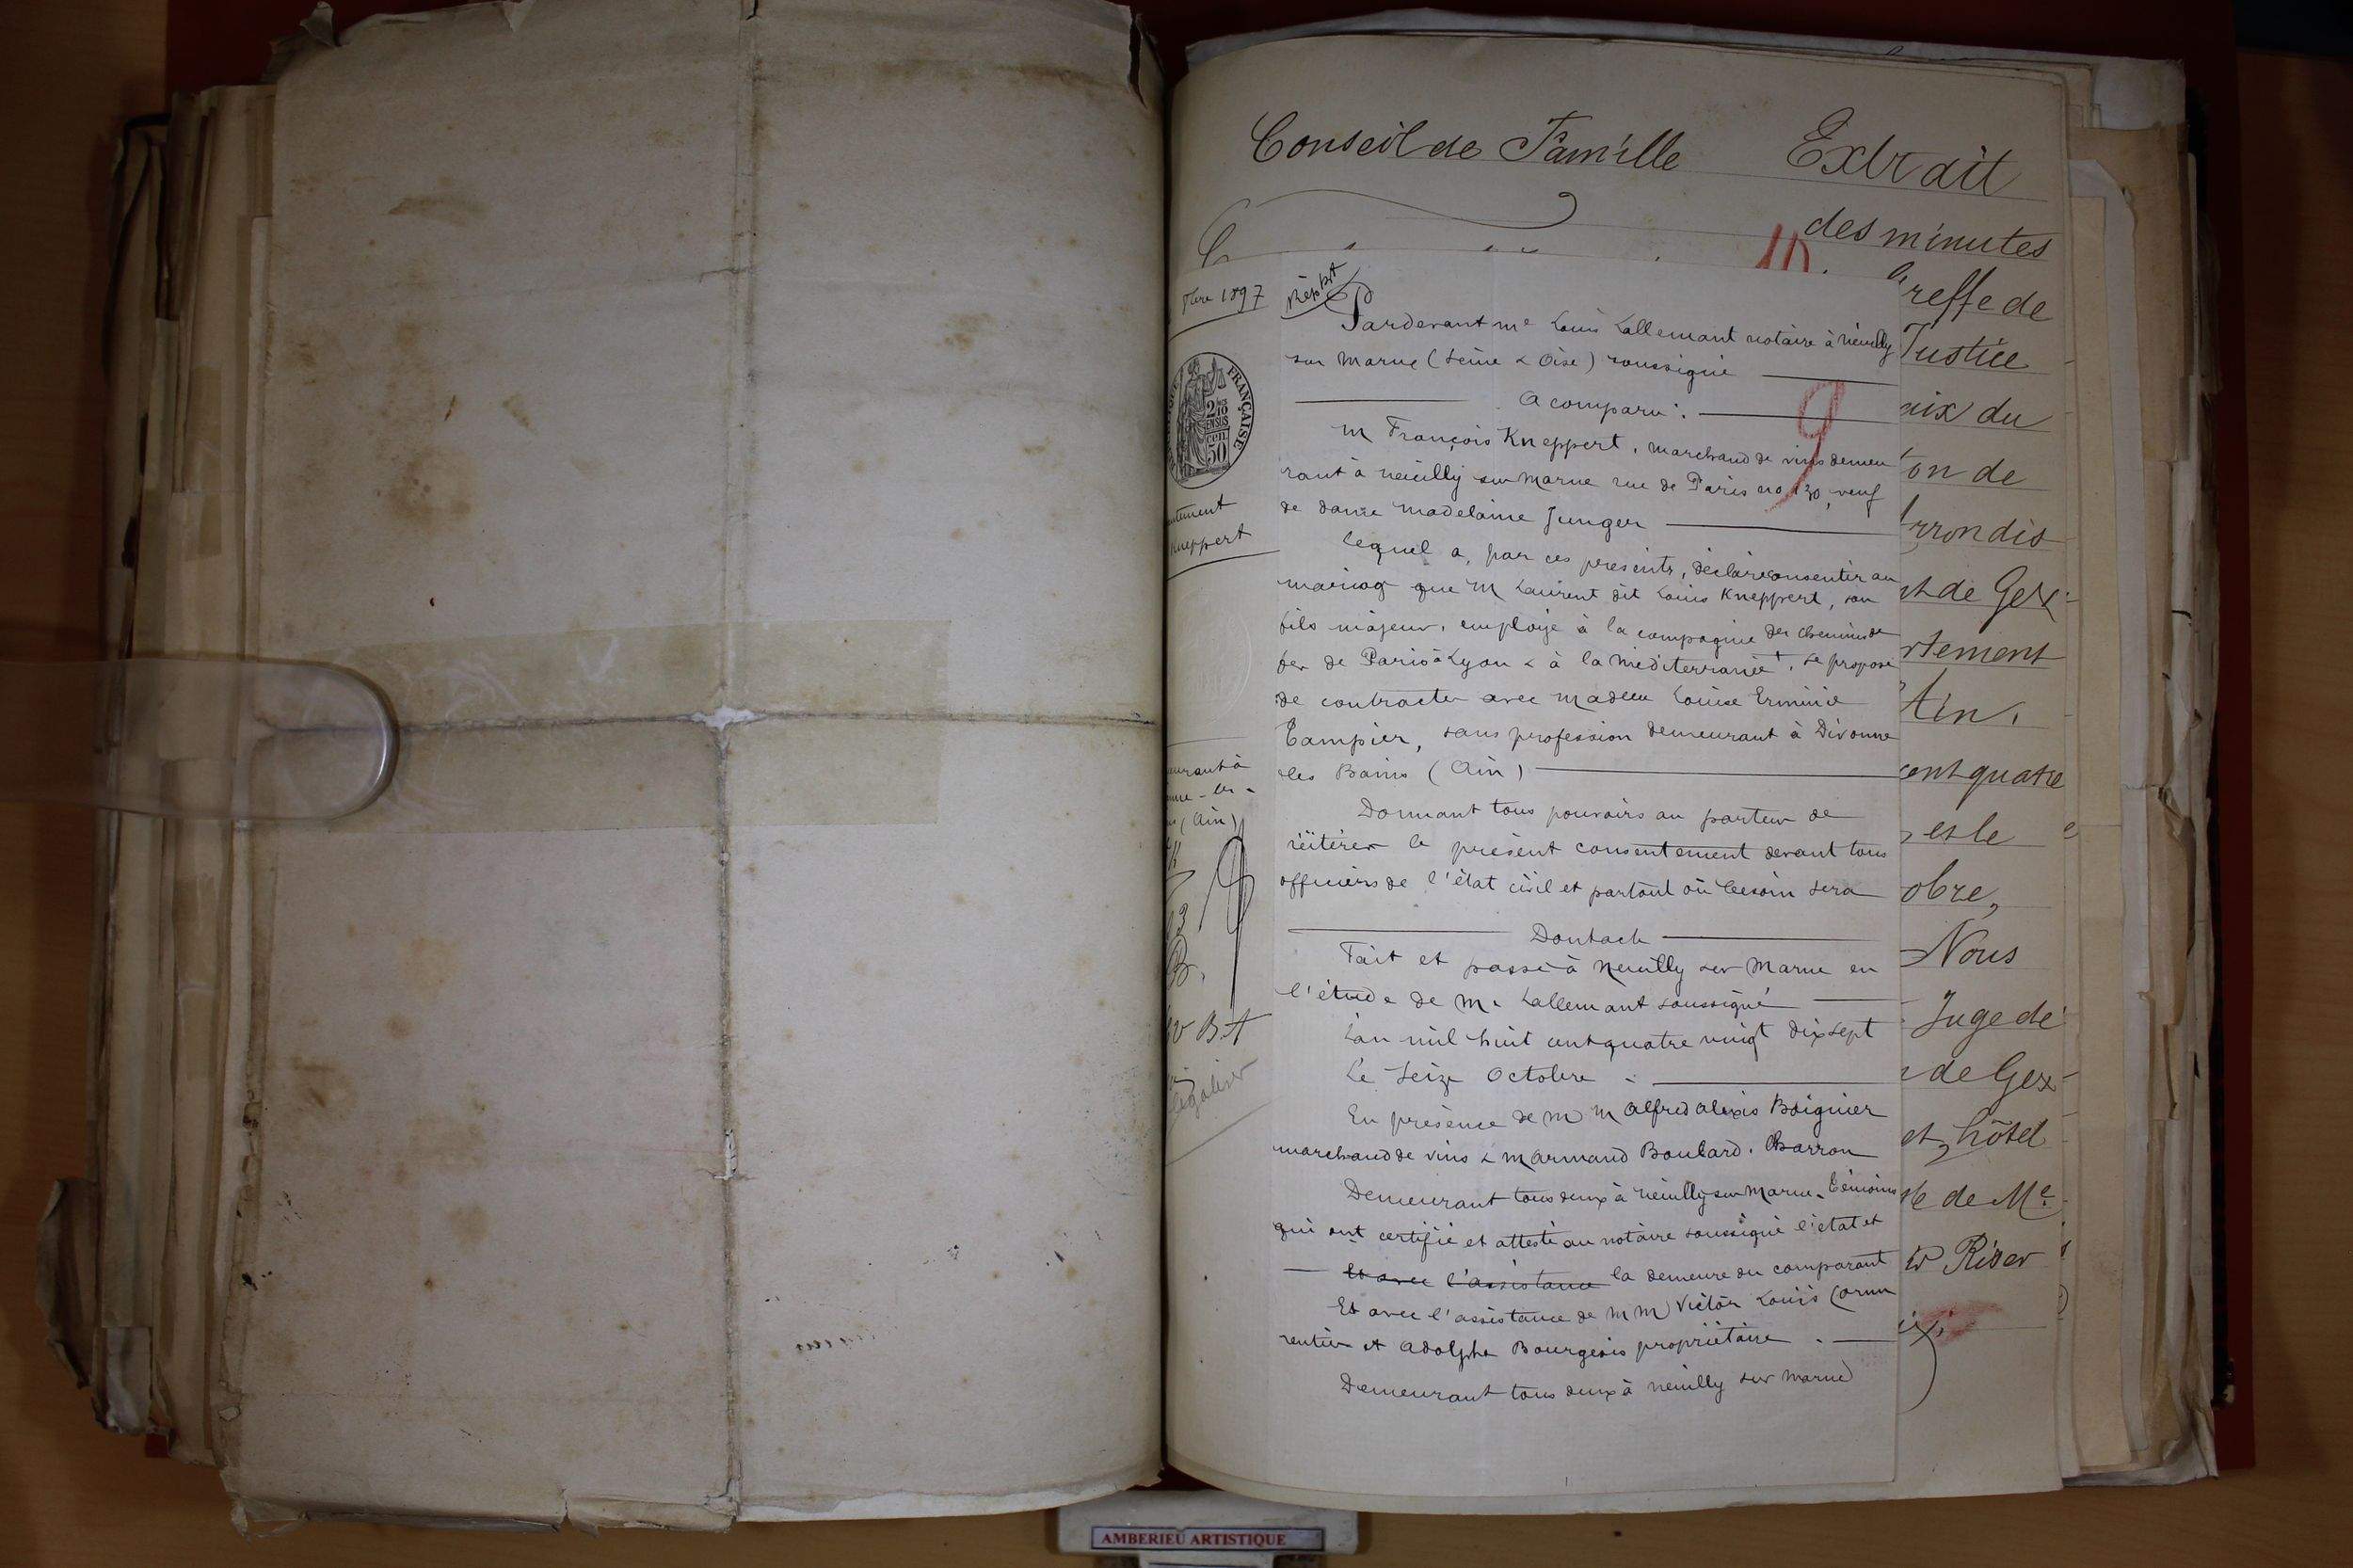 Conseil de Famille Extrait
des minutes
10.
bre 1897
Pardevant Me Louis Lallemant notaire à Neuilly
sur Marne (Seine & Oise) soussigné
A comparu :
9
M François Kneppert, marchand de vins demeu
rant à Neuilly sur Marne rue de Paris no 130, veuf
de dame Madelaine Junger
Lequel a, par ces présents, déclaré consentir au
mariag que M Laurent dit Louis Kneppert, son
fils majeur, employé à la compagnie des chemins de
fer de Paris à Lyon & à la Méditerranée +, se propose
de contracter avec Madelle Louise Erminie
Tampier, sans profession demeurant à Divonne
les Bains (Ain)
Donnant tous pouvoirs au porteur de
réitérer le présent consentement devant tous
officiers de l'état civil et partout où besoin sera
Dont acte
Fait et passé à Neuilly sur Marne en
l'étude de Me Lallemant soussigné
L'an mil huit cent quatre vingt dix sept
Le seize Octobre
En présence de M M Alfred Alexis Boignier
marchand de vins & M Armand Boulard, Charron
Demeurant tous deux à Neuilly sur Marne, témoins
qui ont certifié et attesté au notaire soussigné l'état et
Et avec l'assistance la demeure du comparant
Et avec l'assistance de M M Victor Louis
rentier et Adolphe Bourgeois propriétaire
Demeurant tous deux à Neuilly sur Marne
FRANÇAISE
2/10
EN SUS
50 cen
ntement
Kneppert
eurant à
nne-les-
(Ain)
légaliser
reffe de
Justice
aix du
on de
rrondis
nt de Gex
rtement
Ain.
cent quatre
, et le
obre,
Nous
Juge de
de Gex
et hôtel
de Me
Rider
AMBERIEU ARTISTIQUE